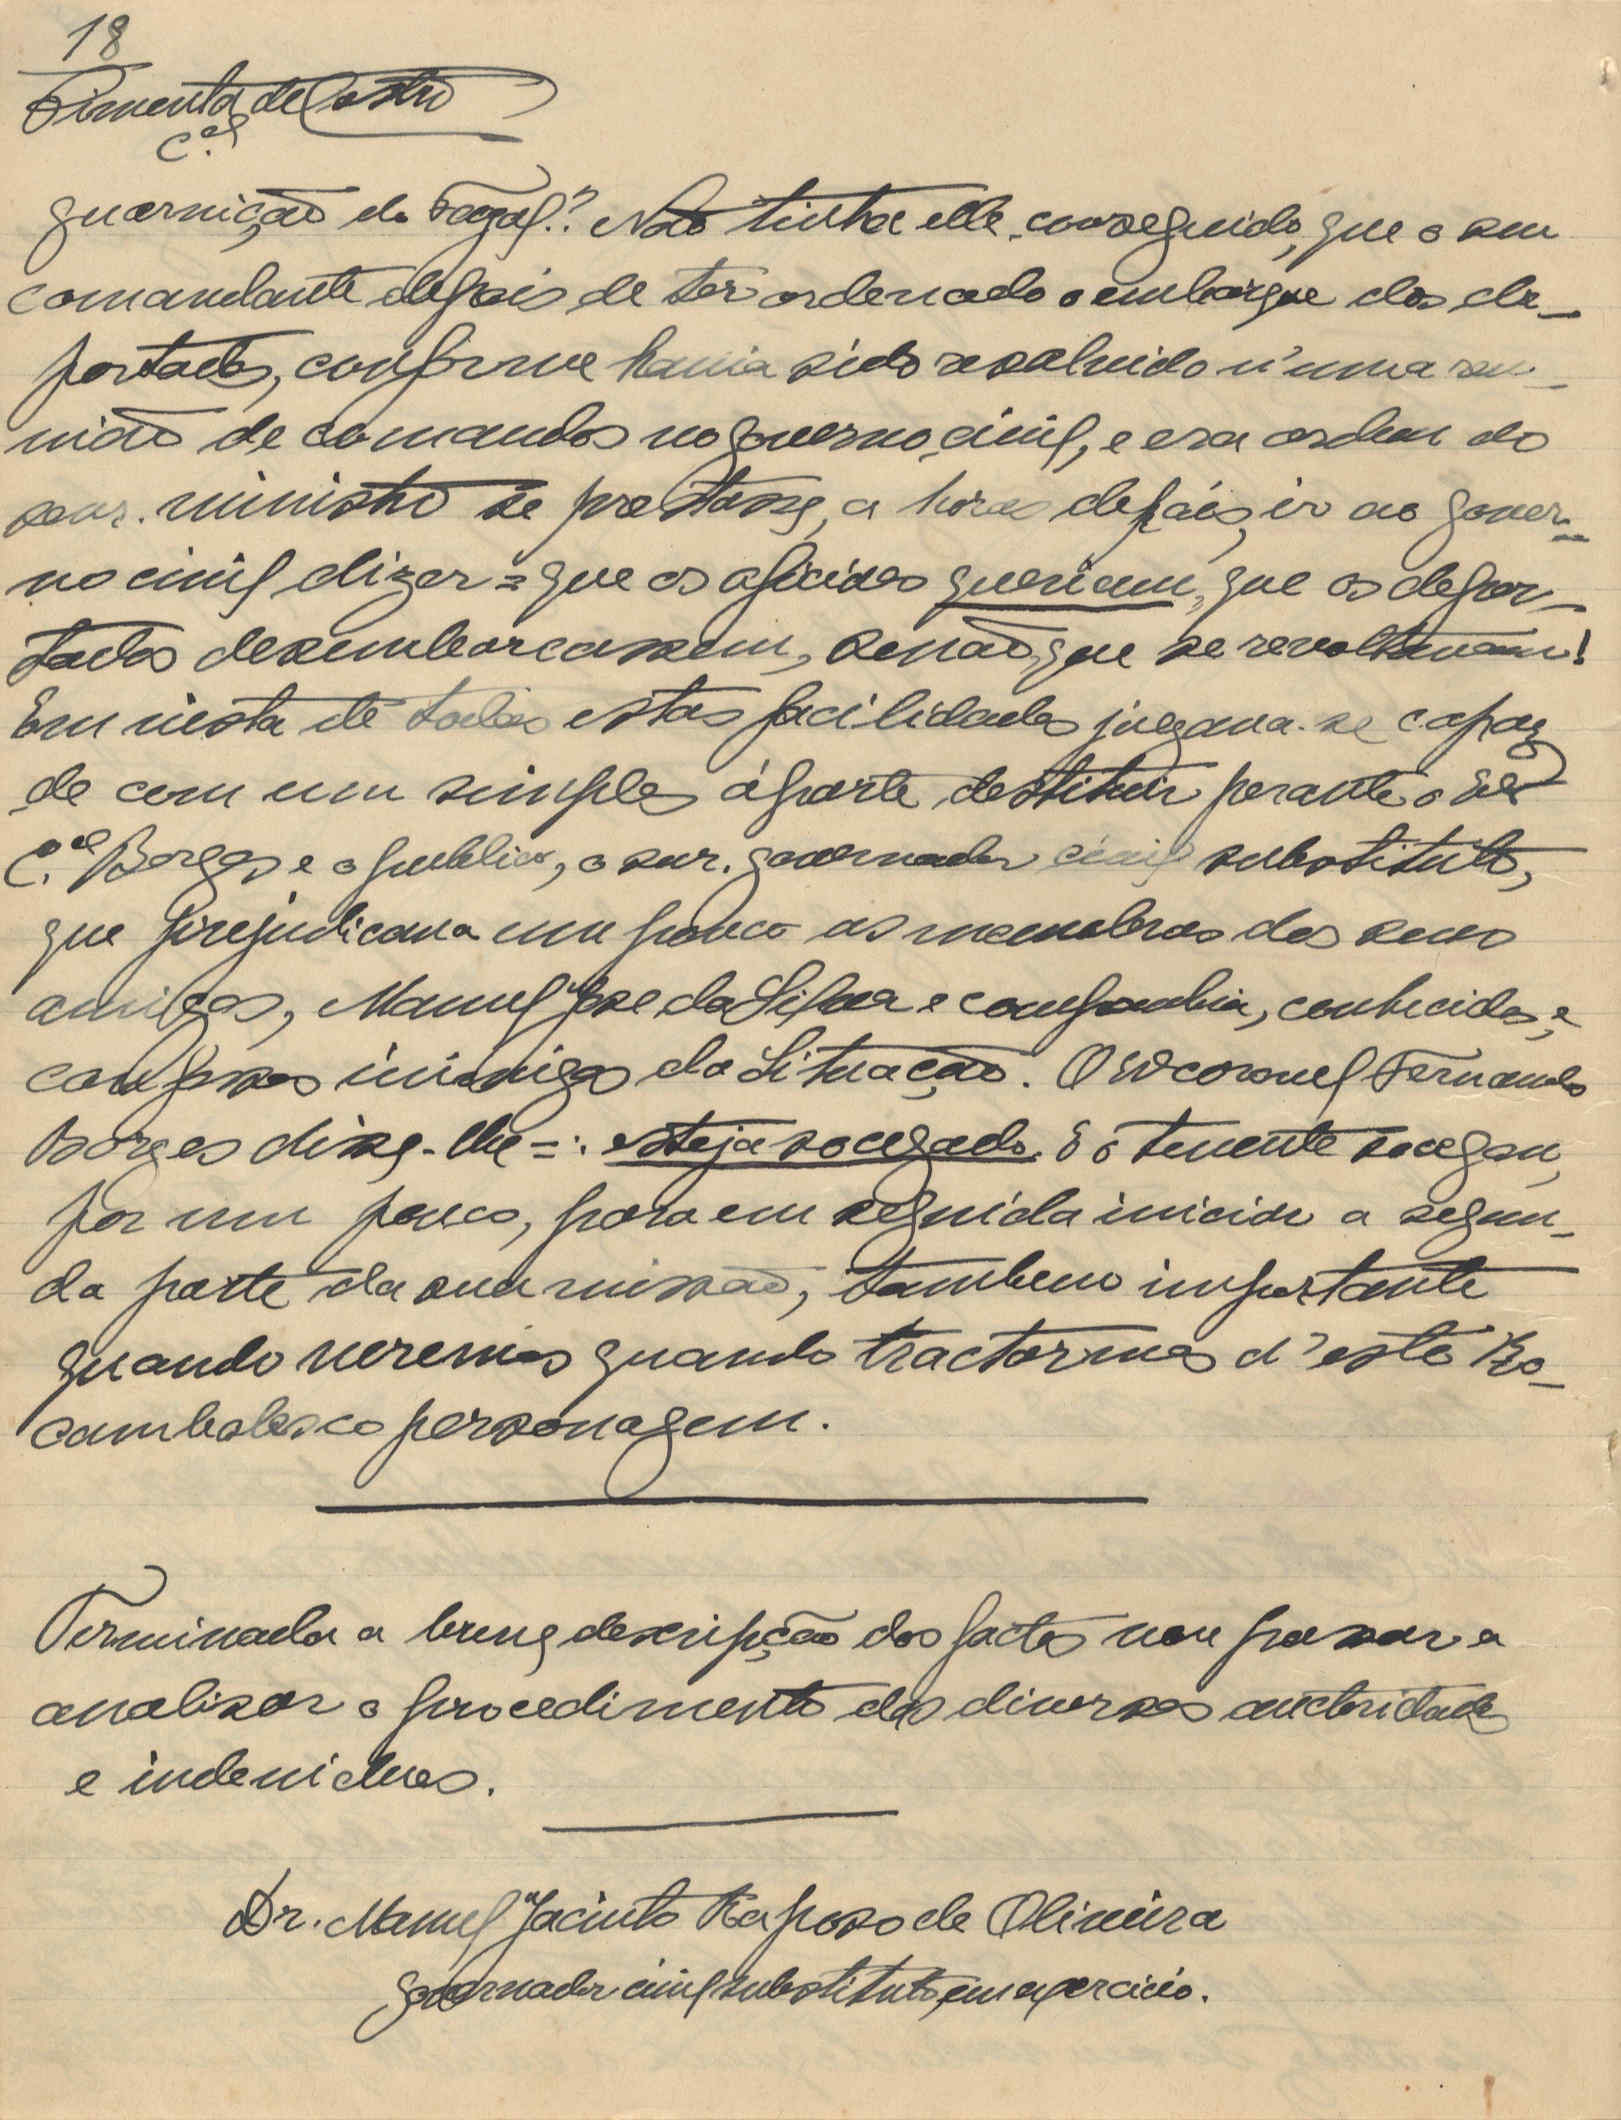 18
Pimenta de Castro
C.el
guarnição do Fayal? Não tinha elle conseguido, que o seu
comandante depois de ter ordenado o embarque dos de-
portados, conforme havia sido resolvido n'uma reu-
nião de comandos no governo civil, e era ordem do
snr. ministro se prestasse, a horas depois, ir ao gover-
no civil dizer = que os oficiaes queriam, que os depor-
tados desembarcassem, senão, que se revoltavam!
Em vista de todas estas facilidades julgava-se capaz
de com um simples áparte destituir perante o Ex
C.el Borges e o publico, o snr. governador civil substituto,
que prejudicava um pouco as manobras dos seus
amigos, Manuel José da Silva e companhia, conhecidos, e
confessos inimigos da Situação. O Ex coronel Fernando
Borges disse-lhe =: esteja socegado. E o tenente socegou,
por um pouco, para em seguida iniciar a segun-
da parte da sua missão, tambem importante
quando veremos quando tractarmos d'este Ro-
cambolesco personagem.
Terminada a breve descripção dos factos vou passar a
analisar o procedimento das diversas auctoridades
e individuos.
Dr. Manuel Jacinto Raposo de Oliveira
governador civil substituto, em exercicio.